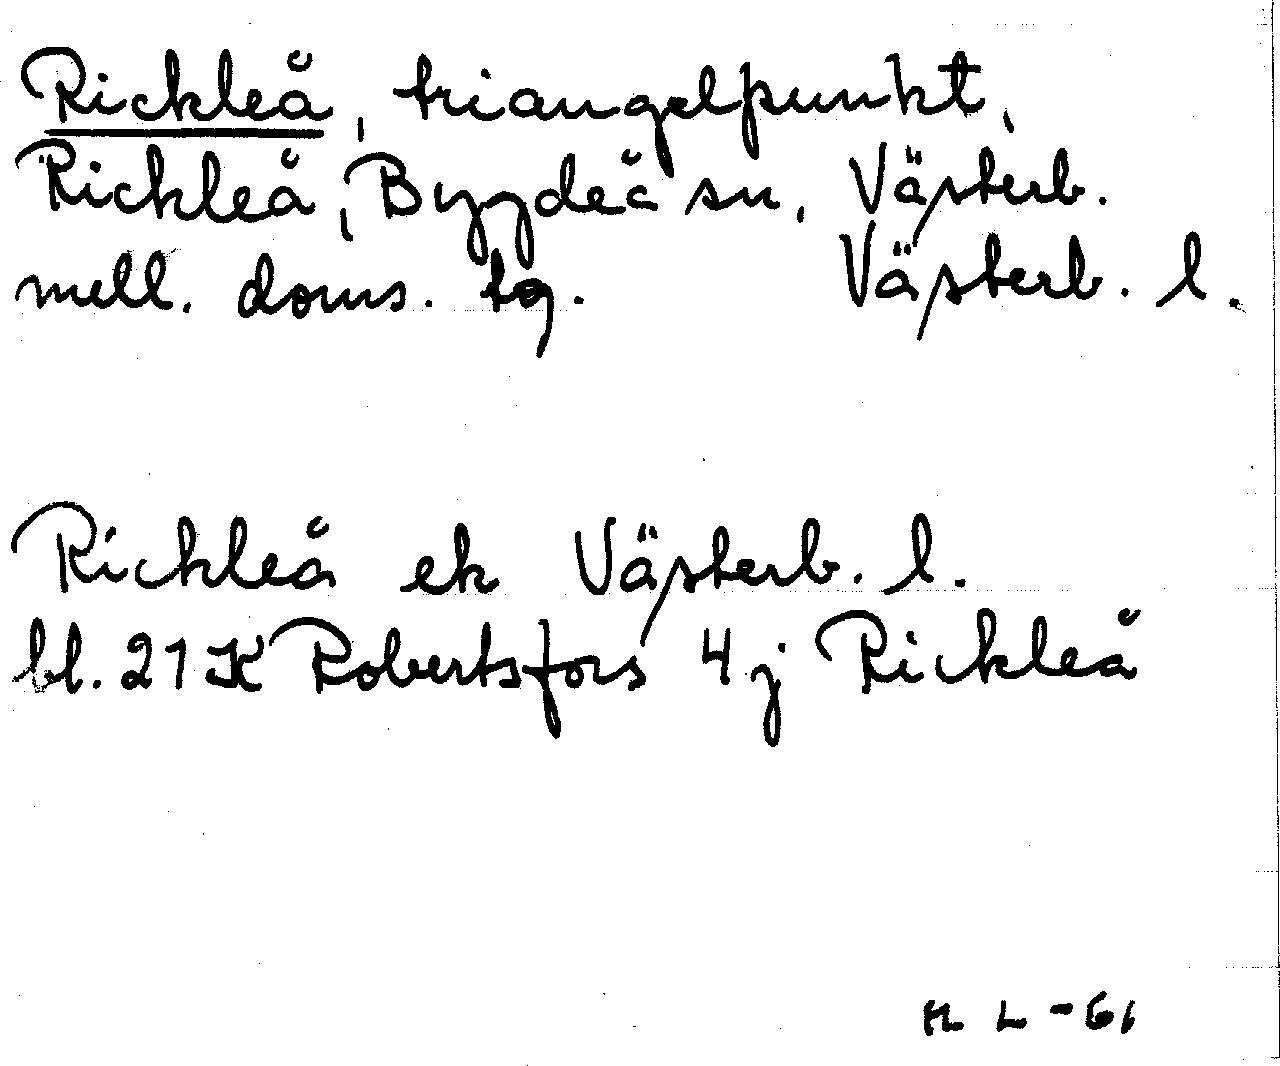 Rickleå, triangelpunkt,
Rickleå, Bygdeå sn, Västerb.
mell. doms. tg. Västerb. l.
Rickleå ek Västerb. l.
bl. 21 K Robertsfors 4 j Rickleå
H L -61